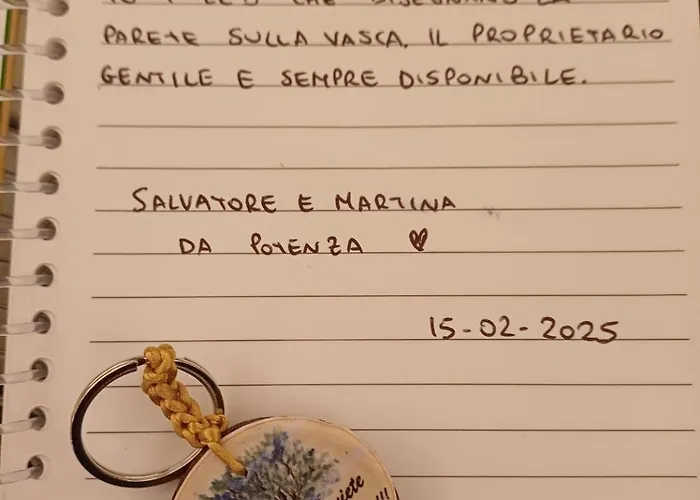 CHE DISEGNANO LA
PARETE SULLA VASCA. IL PROPRIETARIO
GENTILE E SEMPRE DISPONIBILE.
SALVATORE E MARTINA
DA POTENZA ♥
15-02-2025